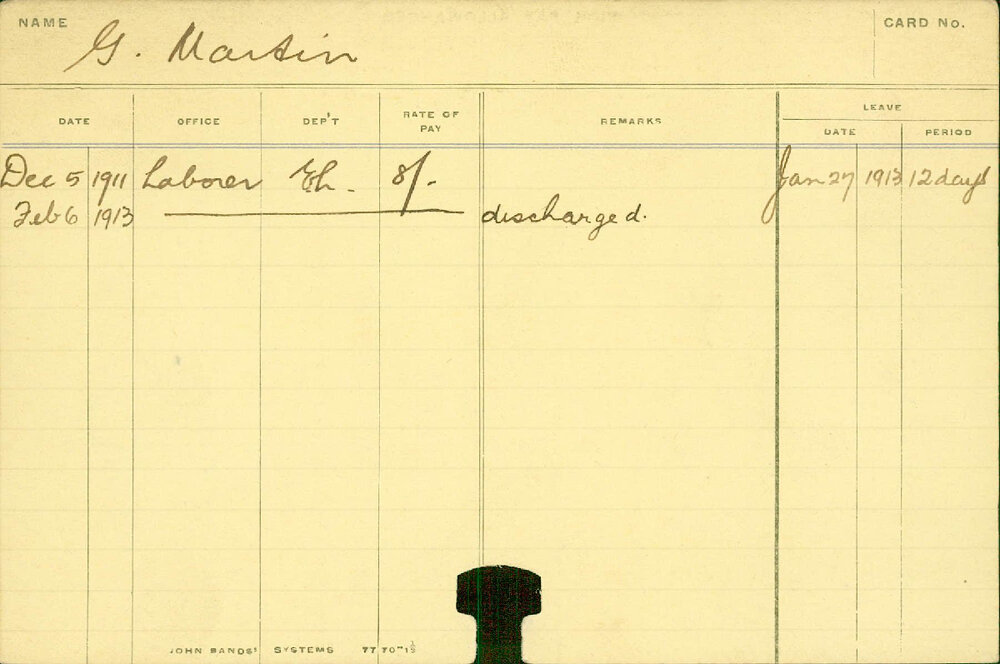 NAME G. Martin CARD No.
DATE OFFICE DEP'T RATE OF PAY REMARKS LEAVE
DATE PERIOD
Dec 5 1911 Laborer 8/- Jan 27 1913 12 days
Feb 6 1913 discharged.
JOHN SANDS' SYSTEMS